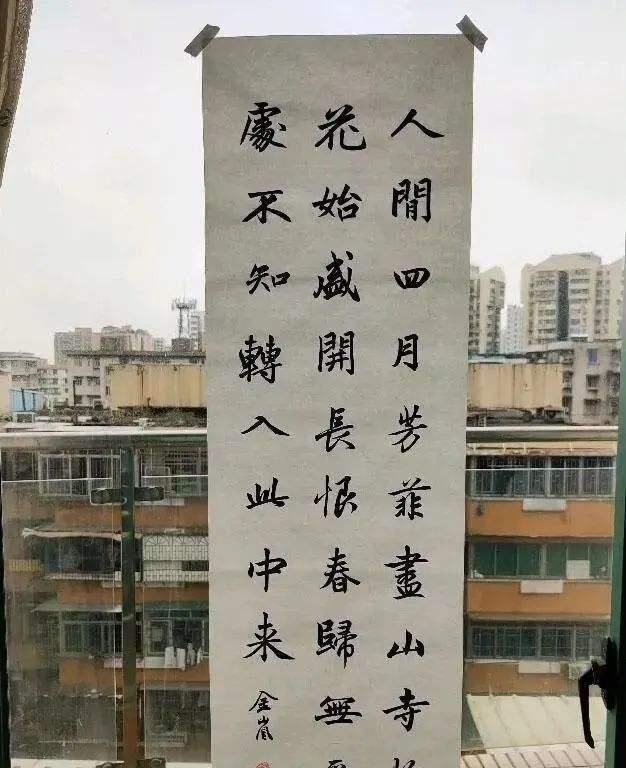 人閒四月芳菲盡山寺
花始盛開長恨春歸無
處不知轉入此中来
金嵐